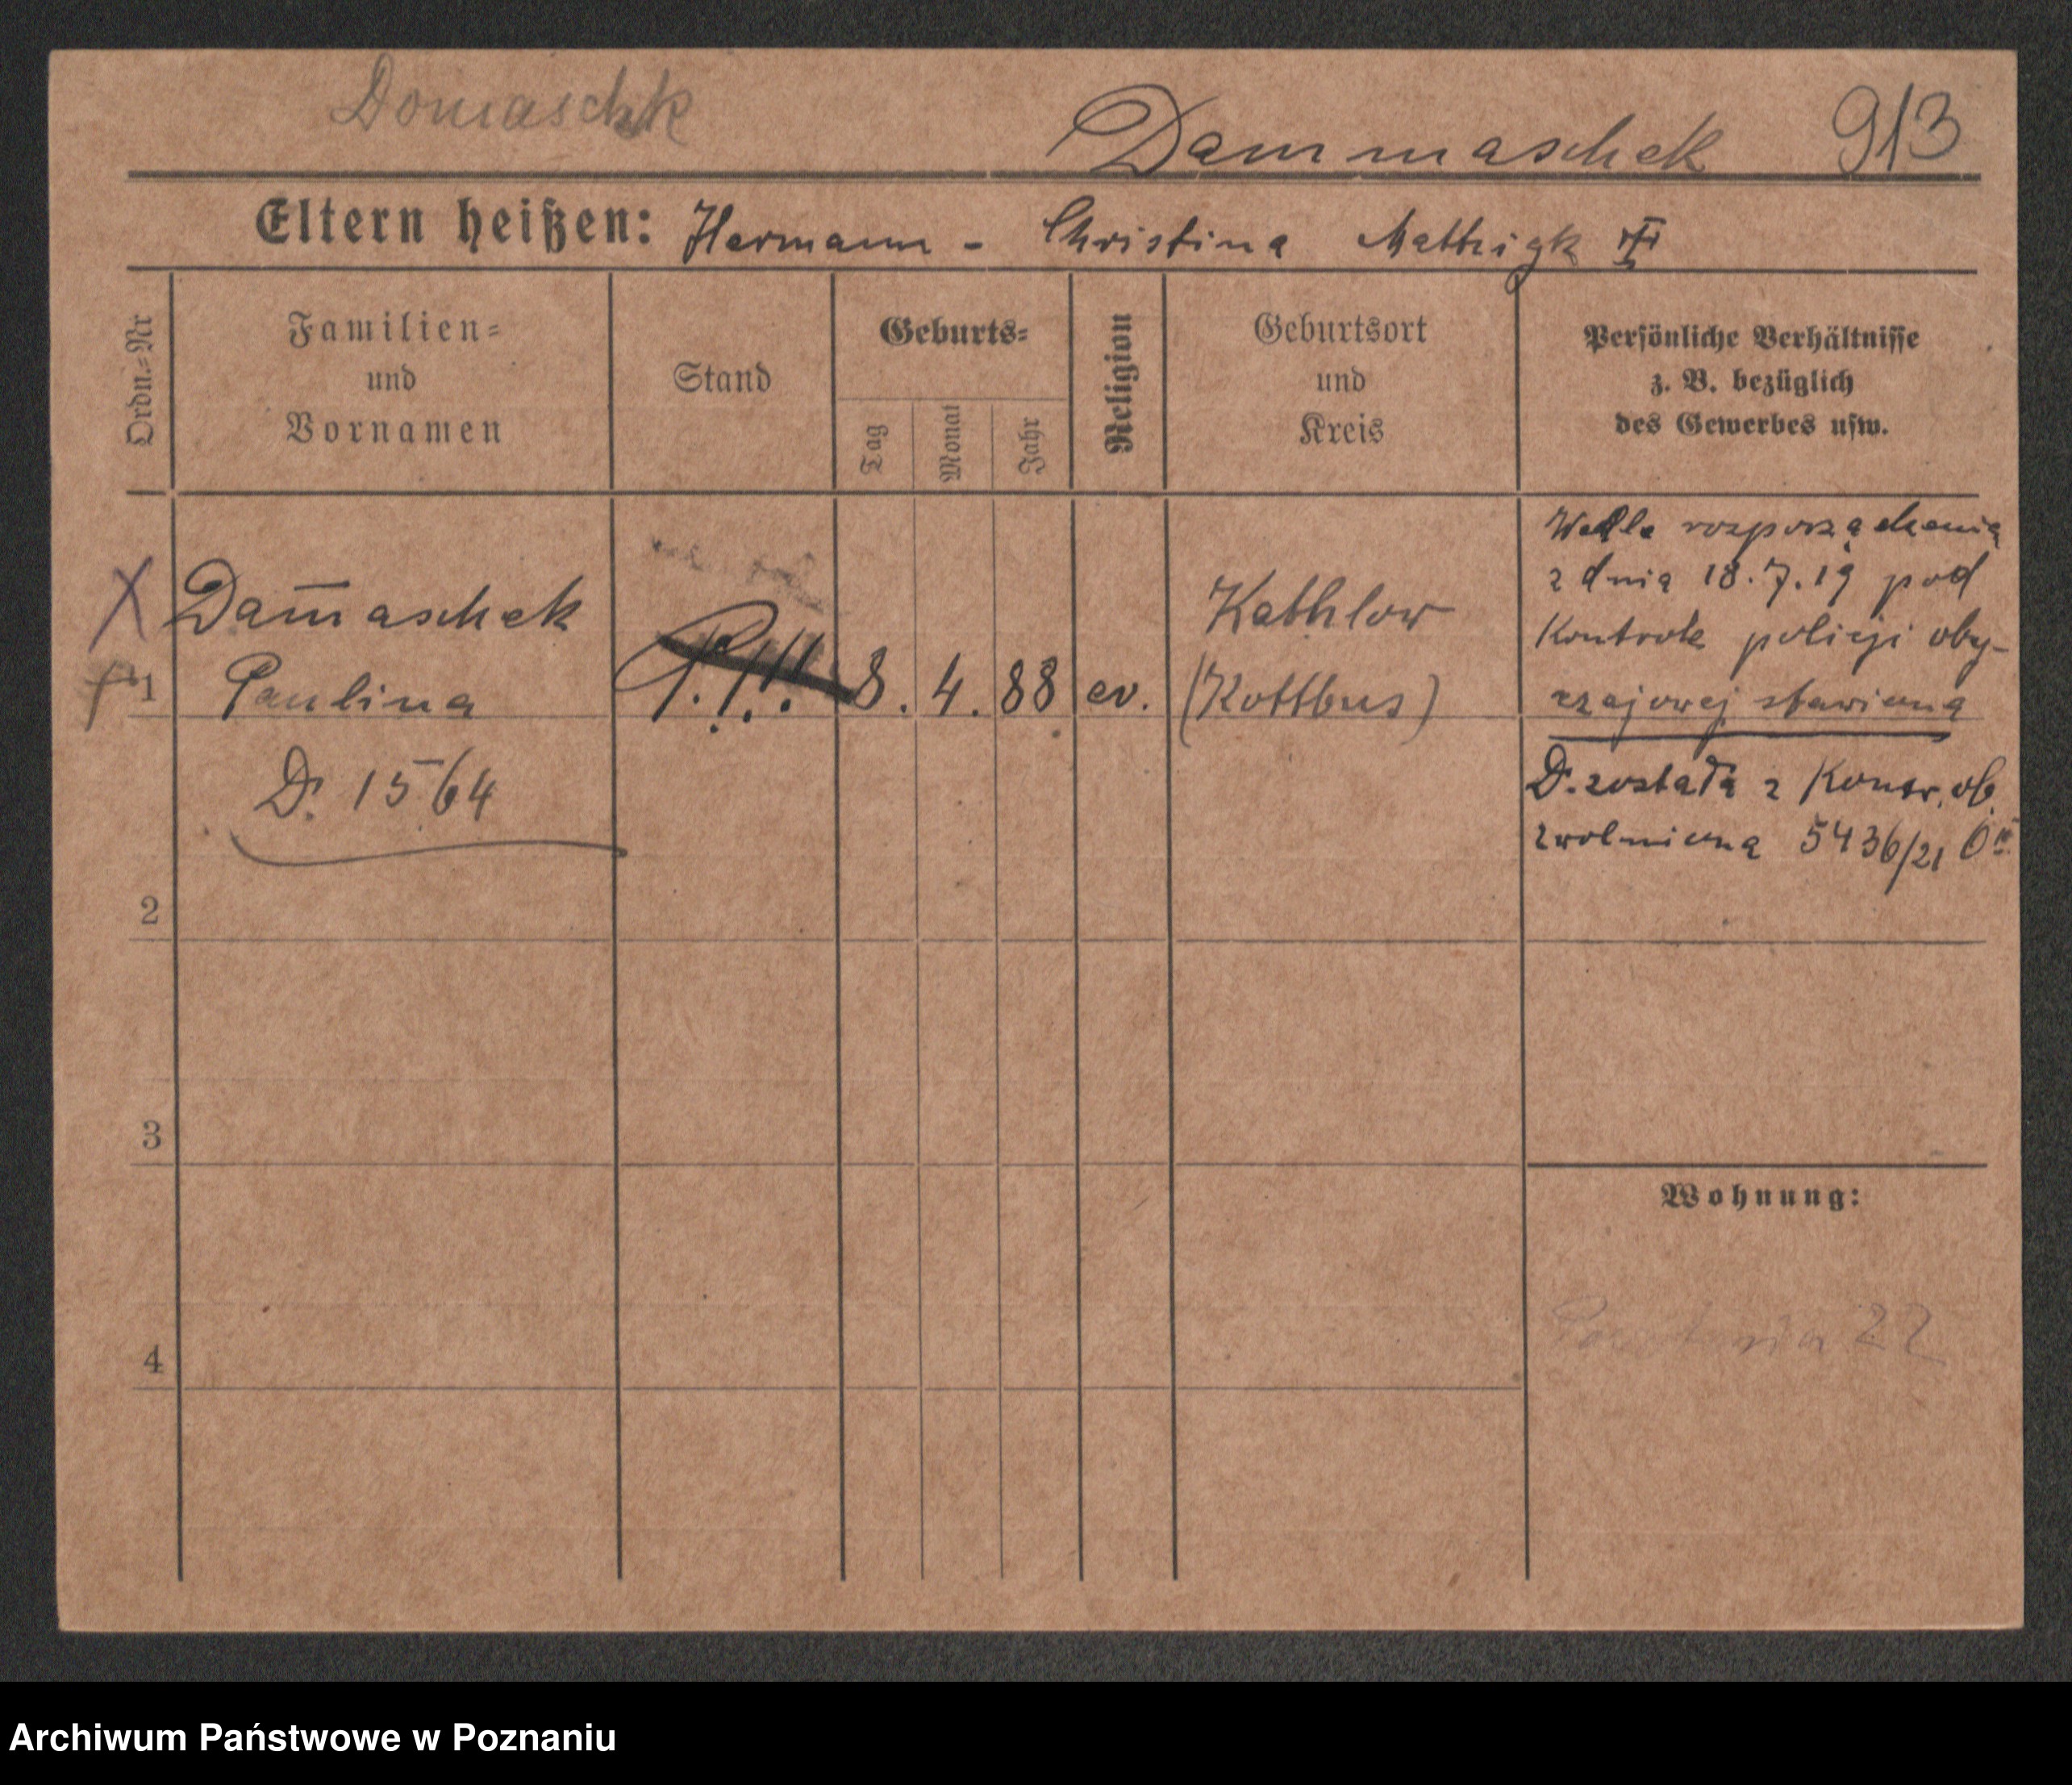 Domaschk
Dammaschek 913
Eltern heißen: Hermann - Christina Matthigk
Ordn.=Nr
Familien=
und
Vornamen
Stand
Geburts=
Tag
Monat
Jahr
Religion
Geburtsort
und
Kreis
Persönliche Verhältnisse
z. B. bezüglich
des Gewerbes usw.
X Dam̄aschek
1 Paulina
D. 1564
8. 4. 88 ev.
Kathlow
(Kottbus)
Wedle rozporządzenia
z dnia 18.7.19 pod
Kontrole policji oby-
czajowej stawiona
D. została z Kontr. ob.
zwolniona 5436/21
2
3
4
Wohnung:
22
Archiwum Państwowe w Poznaniu